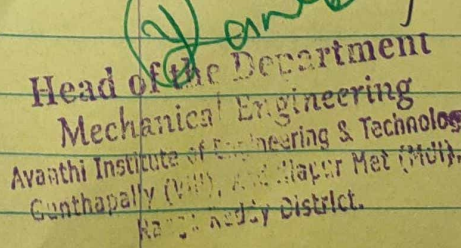 Head of the Department
Mechanical Engineering
Avanthi Institute of Engineering & Technolog
Gunthapally (Vill), Met (Mdl),
Ranga Reddy District.